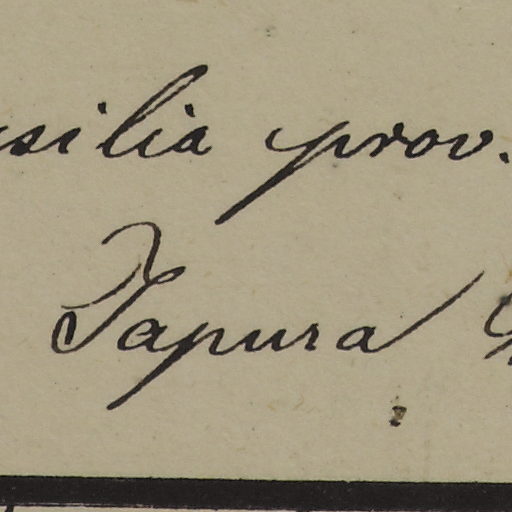 silia prov.
Tapura